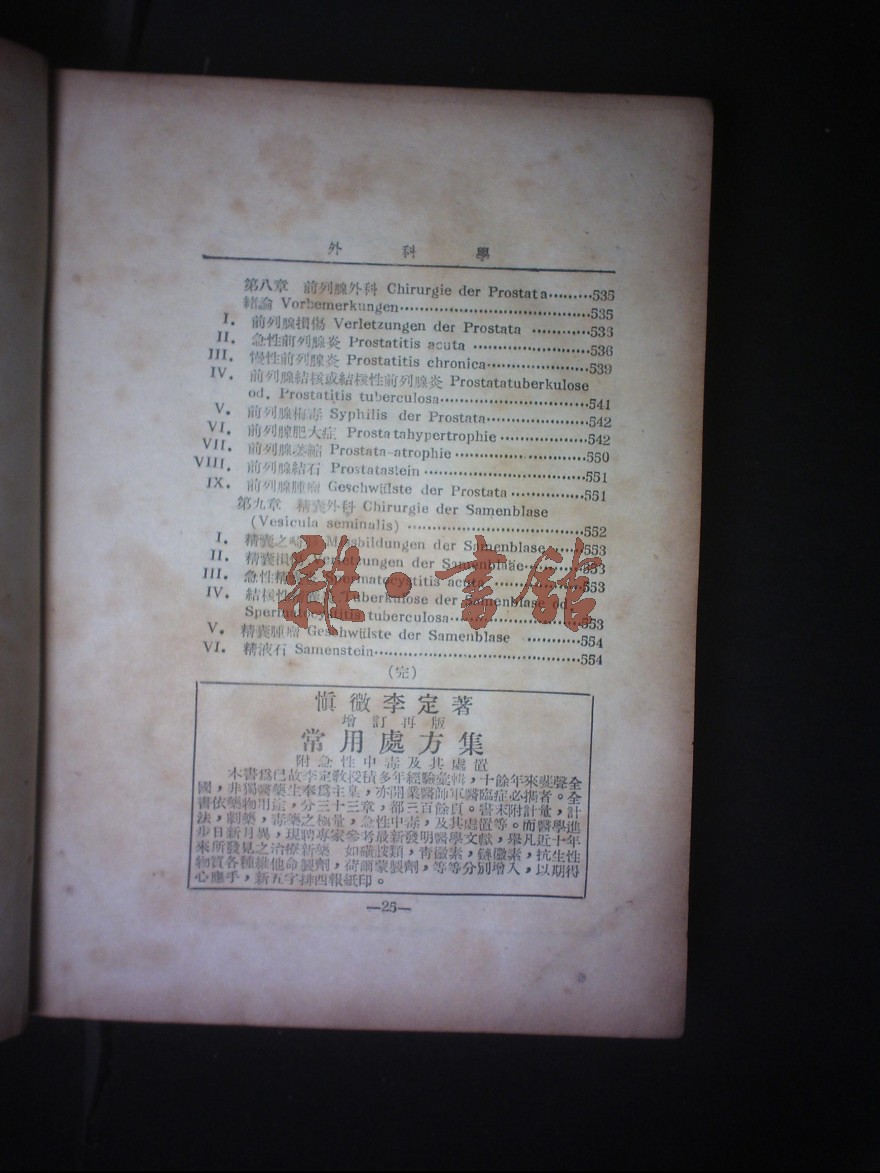 外科學
第八章 前列腺外科 Chirurgie der Prostata………535
緒論 Vorbemerkungen………535
I. 前列腺損傷 Verletzungen der Prostata ………533
II. 急性前列腺炎 Prostatitis acuta ………536
III. 慢性前列腺炎 Prostatitis chronica………539
IV. 前列腺結核或結核性前列腺炎 Prostatatuberkulose
od. Prostatitis tuberculosa………541
V. 前列腺梅毒 Syphilis der Prostata………542
VI. 前列腺肥大症 Prostatahypertrophie ………542
VII. 前列腺萎縮 Prostata-atrophie ………550
VIII. 前列腺結石 Prostatastein ………551
IX. 前列腺腫瘤 Geschwülste der Prostata ………551
第九章 精囊外科 Chirurgie der Samenblase
(Vesicula seminalis) ………552
I. 精囊之 Missbildungen der Samenblase………553
II. 精囊損 Verletzungen der Samenbläae………553
III. 急性精 Spermatocystitis acuta………553
IV. 結核性 Tuberkulose der Samenblase od.
Spermatocystitis tuberculosa………553
V. 精囊腫瘤 Geschwülste der Samenblase ………554
VI. 精液石 Samenstein………554
(完)
雜·書館
愼微李定著
增訂再版
常用處方集
附急性中毒及其處置
本書爲已故李定敎授積多年經驗彙輯，十餘年來蜚聲全
國，非獨醫藥生奉爲主臬，亦開業醫師軍醫臨症必攜者。全
書依藥物用途，分三十三章，都三百餘頁。書末附計量，計
法，劇藥，毒藥之極量，急性中毒，及其處置等。而醫學進
步日新月異，現聘專家參考最新發明醫學文獻，舉凡近十年
來所發見之治療新藥，如磺胺類，靑黴素，鏈黴素，抗生性
物質各種維他命製劑，荷爾蒙製劑，等等分別增入，以期得
心應手，新五字排四報紙印。
—25—